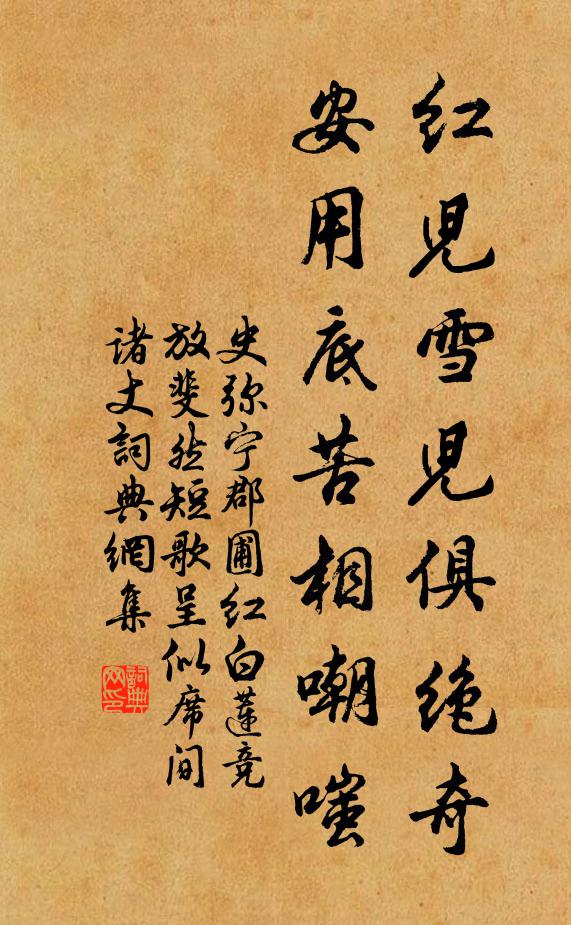 红児雪児俱绝奇
安用底苦相嘲嗤
史弥宁郡圃红白莲竞
放斐然短歌呈似席间
诸丈詞典網集
詞典網印